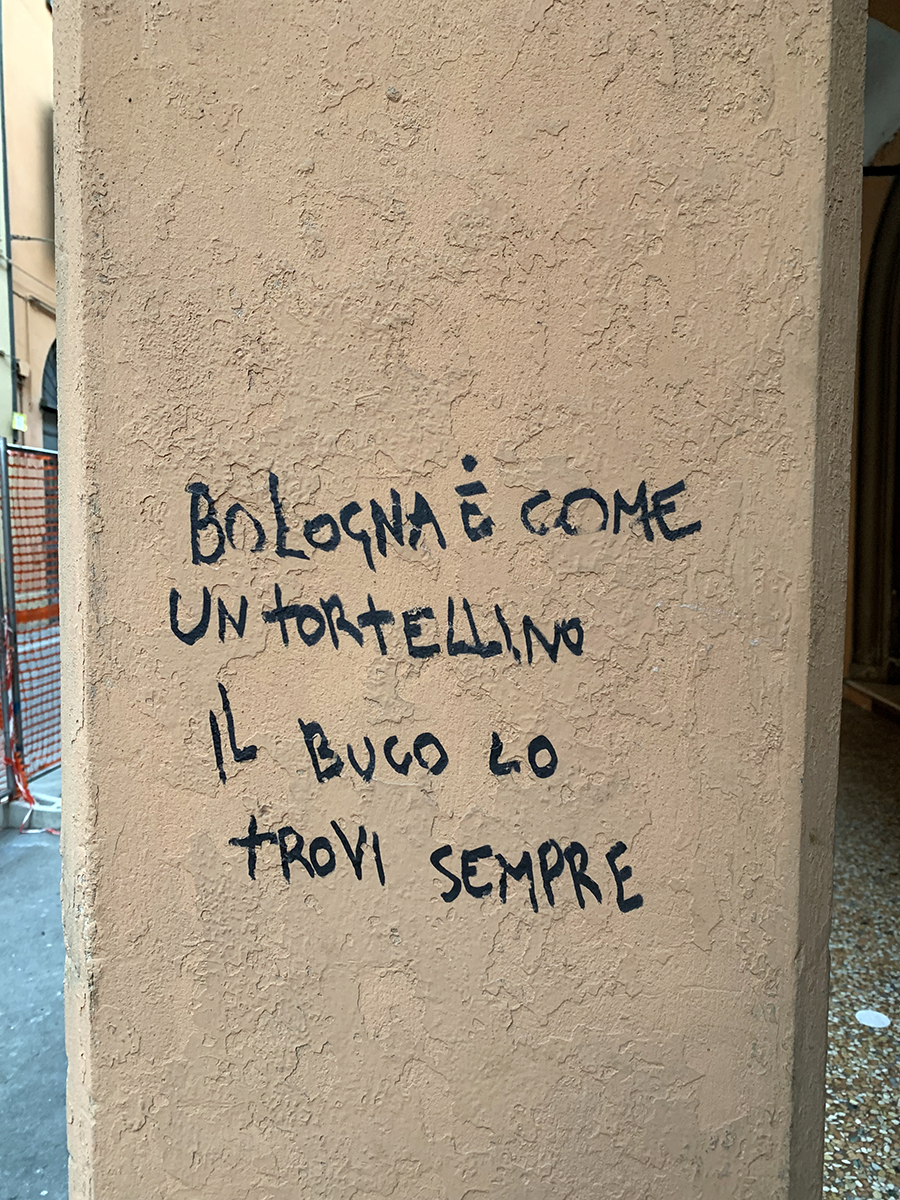 BOLOGNA È COME
UN TORTELLINO
IL BUCO LO
TROVI SEMPRE